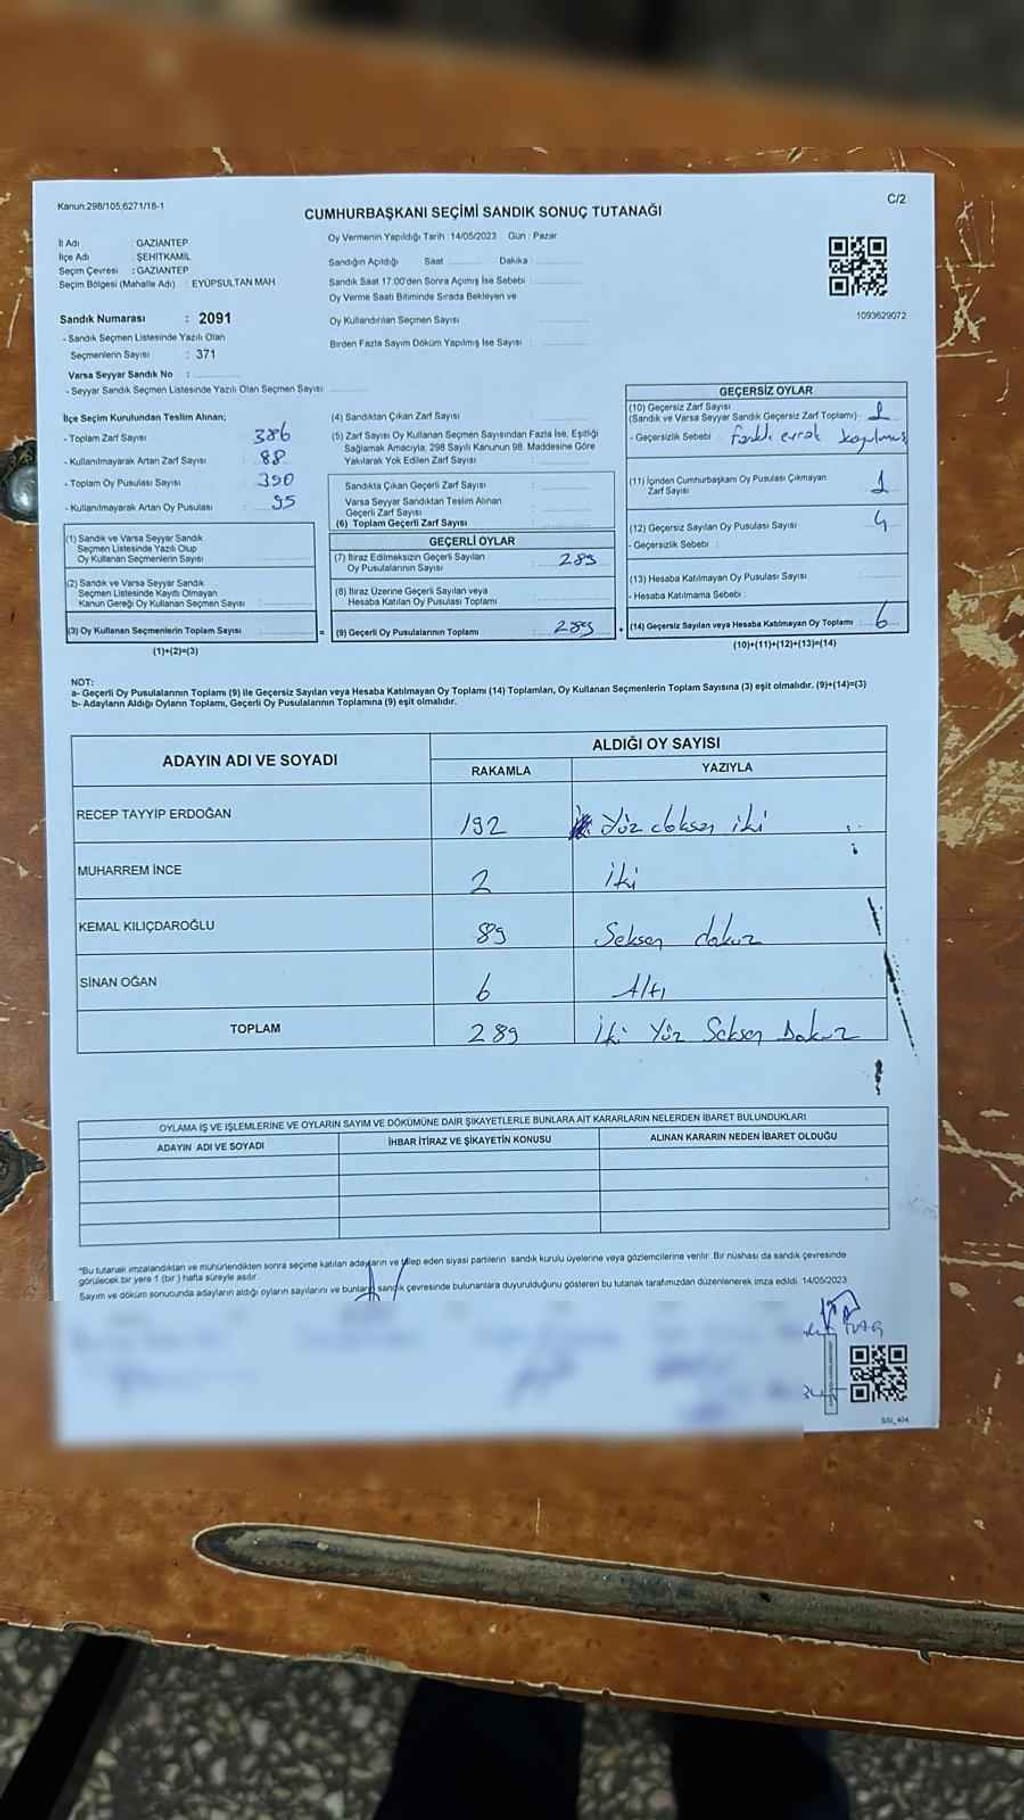 Kanun:298/105,6271/18-1
C/2
CUMHURBAŞKANI SEÇİMİ SANDIK SONUÇ TUTANAĞI
İl Adı : GAZİANTEP
İlçe Adı : ŞEHİTKAMİL
Seçim Çevresi : GAZİANTEP
Seçim Bölgesi (Mahalle Adı) : EYÜPSULTAN MAH
Sandık Numarası : 2091
- Sandık Seçmen Listesinde Yazılı Olan
Seçmenlerin Sayısı : 371
Varsa Seyyar Sandık No :
- Seyyar Sandık Seçmen Listesinde Yazılı Olan Seçmen Sayısı
Oy Vermenin Yapıldığı Tarih :14/05/2023 Gün : Pazar
Sandığın Açıldığı Saat Dakika :
Sandık Saat 17:00'den Sonra Açımış İse Sebebi :
Oy Verme Saati Bitiminde Sırada Bekleyen ve
Oy Kullandırılan Seçmen Sayısı
Birden Fazla Sayım Döküm Yapılmış İse Sayısı :
1093629072
İlçe Seçim Kurulundan Teslim Alınan;
- Toplam Zarf Sayısı 386
- Kullanılmayarak Artan Zarf Sayısı : 88
- Toplam Oy Pusulası Sayısı : 390
- Kullanılmayarak Artan Oy Pusulası : 95
(1) Sandık ve Varsa Seyyar Sandık
Seçmen Listesinde Yazılı Olup
Oy Kullanan Seçmenlerin Sayısı
(2) Sandık ve Varsa Seyyar Sandık
Seçmen Listesinde Kayıtlı Olmayan
Kanun Gereği Oy Kullanan Seçmen Sayısı
(3) Oy Kullanan Seçmenlerin Toplam Sayısı =
(1)+(2)=(3)
(4) Sandıktan Çıkan Zarf Sayısı
(5) Zarf Sayısı Oy Kullanan Seçmen Sayısından Fazla İse, Eşitliği
Sağlamak Amacıyla, 298 Sayılı Kanunun 98. Maddesine Göre
Yakılarak Yok Edilen Zarf Sayısı :
Sandıkta Çıkan Geçerli Zarf Sayısı :
Varsa Seyyar Sandıktan Teslim Alınan
Geçerli Zarf Sayısı
(6) Toplam Geçerli Zarf Sayısı
GEÇERLİ OYLAR
(7) İtiraz Edilmeksizin Geçerli Sayılan
Oy Pusulalarının Sayısı : 289
(8) İtiraz Üzerine Geçerli Sayılan veya
Hesaba Katılan Oy Pusulası Toplamı :
(9) Geçerli Oy Pusulalarının Toplamı : 289 +
GEÇERSİZ OYLAR
(10) Geçersiz Zarf Sayısı
(Sandık ve Varsa Seyyar Sandık Geçersiz Zarf Toplamı) : 1
- Geçersizlik Sebebi : Farklı evrak koyulmuş
(11) İçinden Cumhurbaşkanı Oy Pusulası Çıkmayan
Zarf Sayısı 1
(12) Geçersiz Sayılan Oy Pusulası Sayısı 4
- Geçersizlik Sebebi :
(13) Hesaba Katılmayan Oy Pusulası Sayısı
- Hesaba Katılmama Sebebi :
(14) Geçersiz Sayılan veya Hesaba Katılmayan Oy Toplamı 6
(10)+(11)+(12)+(13)=(14)
NOT:
a- Geçerli Oy Pusulalarının Toplamı (9) ile Geçersiz Sayılan veya Hesaba Katılmayan Oy Toplamı (14) Toplamları, Oy Kullanan Seçmenlerin Toplam Sayısına (3) eşit olmalıdır. (9)+(14)=(3)
b- Adayların Aldığı Oyların Toplamı, Geçerli Oy Pusulalarının Toplamına (9) eşit olmalıdır.
ADAYIN ADI VE SOYADI ALDIĞI OY SAYISI
RAKAMLA YAZIYLA
RECEP TAYYİP ERDOĞAN 192 Yüz doksan iki
MUHARREM İNCE 2 iki
KEMAL KILIÇDAROĞLU 89 Seksen dokuz
SİNAN OĞAN 6 Altı
TOPLAM 289 İki Yüz Seksen Dokuz
OYLAMA İŞ VE İŞLEMLERİNE VE OYLARIN SAYIM VE DÖKÜMÜNE DAİR ŞİKAYETLERLE BUNLARA AİT KARARLARIN NELERDEN İBARET BULUNDUKLARI
ADAYIN ADI VE SOYADI İHBAR İTİRAZ VE ŞİKAYETİN KONUSU ALINAN KARARIN NEDEN İBARET OLDUĞU
*Bu tutanak imzalandıktan ve mühürlendikten sonra seçime katılan adayların ve talep eden siyasi partilerin sandık kurulu üyelerine veya gözlemcilerine verilir. Bir nüshası da sandık çevresinde
görülecek bir yere 1 (bir) hafta süreyle asılır.
Sayım ve döküm sonucunda adayların aldığı oyların sayılarını ve bunların sandık çevresinde bulunanlara duyurulduğunu gösteren bu tutanak tarafımızdan düzenlenerek imza edildi. 14/05/2023